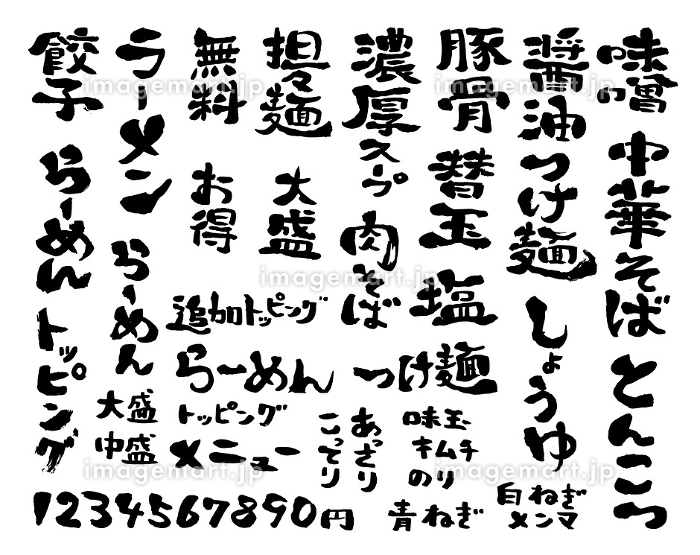 味噌
中華そば
とんこつ
醤油
つけ麺
しょうゆ
豚骨
替玉
塩
濃厚
スープ
肉そば
担々麺
大盛
無料
お得
ラーメン
らーめん
餃子
らーめん
トッピング
追加トッピング
らーめん
つけ麺
大盛
中盛
トッピング
メニュー
あっさり
こってり
味玉
キムチ
のり
青ねぎ
白ねぎ
メンマ
1234567890円
imagemart.jp
imagemart.jp
imagemart.jp
imagemart.jp
imagemart.jp